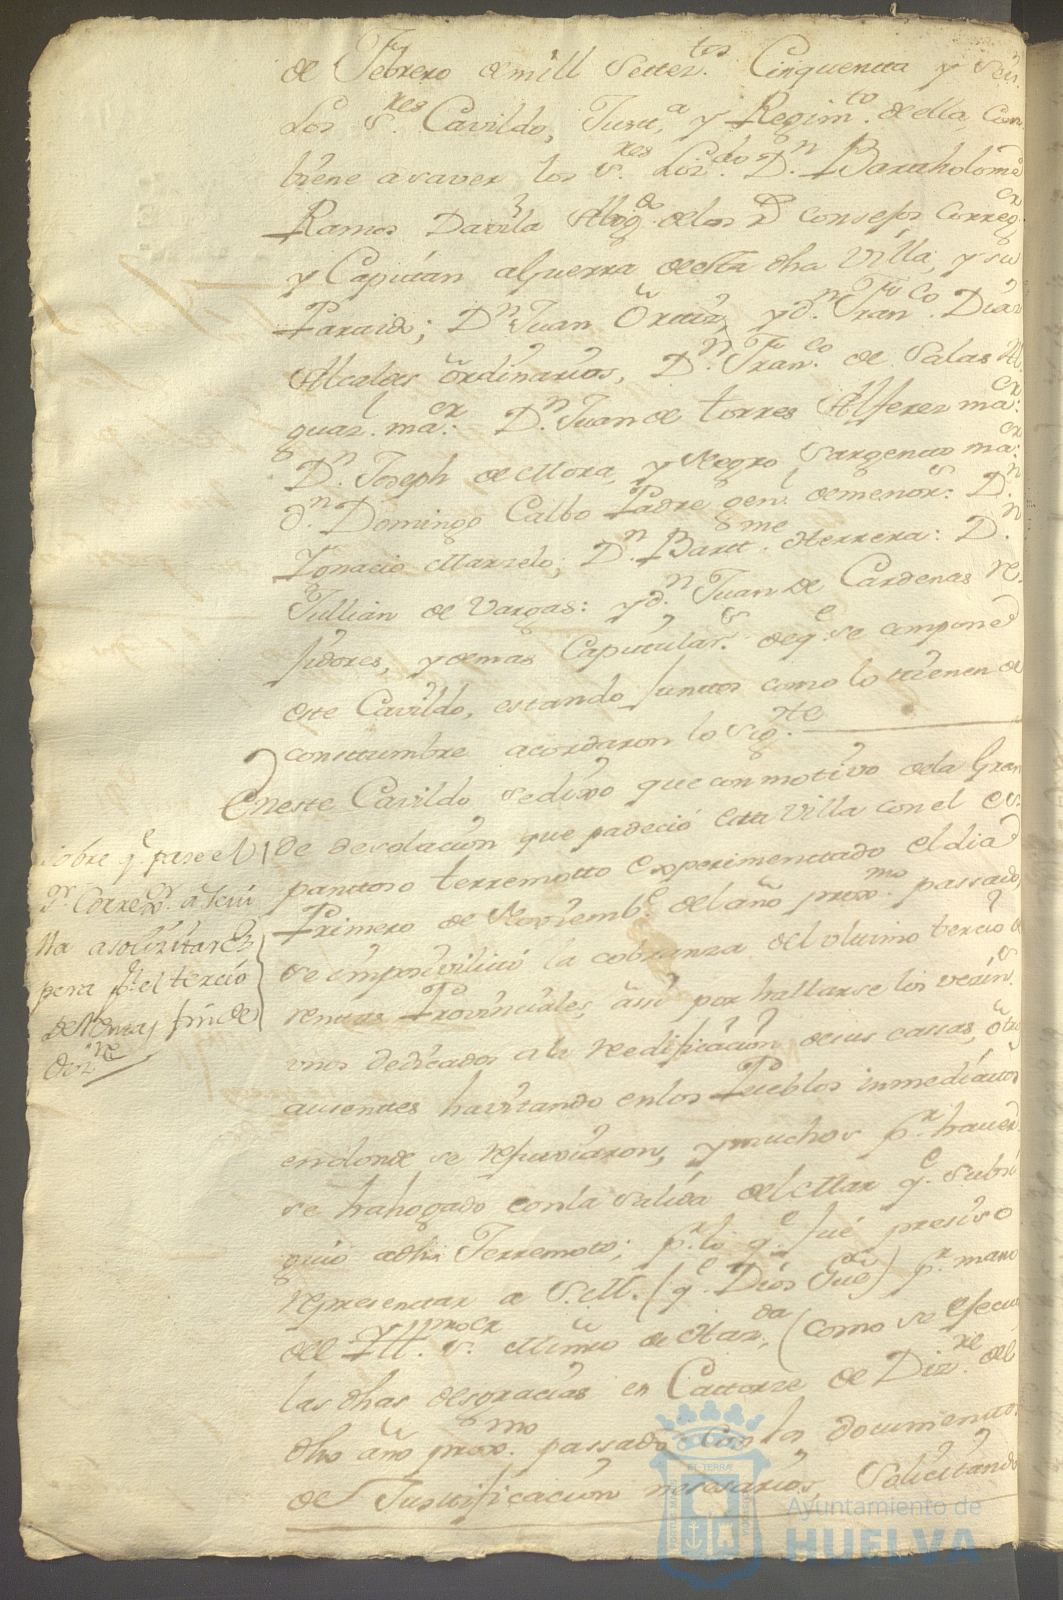 de Febrero de mill Settez.tos Cinquenta y Seis
Los S.res Cavildo, Just.a y Regim.to de ella, com
biene a saver los S.res Liz.do D.n Bartholome
Ramos Davila Abog.do de los R.s consejos Correg.or
y Capitan a Guerra de esta dha Villa, y su
Partido; D.n Juan Ortiz, y d.n Fran.co Diaz
Alcaldes ordinarios, D.n Fran.co de Salas Al
guaz.l ma.or D.n Juan de torres Alferez ma.or
D.n Joseph de Mora, y Negro Sargento ma.or
d.n Domingo Calbo Padre gen.l de menor.s D.n
Ignacio Marzelo; D.n Bart.me Herrera: D.n
Jullian de Vargas: y d.n Juan de Cardenas Re
jidores, y demas Capitular.s de q.e se compone
este Cavildo, estando juntos como lo tienen de
constumbre acordaron lo sig.te
En este Cavildo se dixo que con motivo de la Gran
de desolacion que padecio esta Villa con el es
pantoso terremotto experimentado el dia
Primero de Noviemb.e del año prox.mo passado,
se imposivilitó la cobranza del ultimo tercio de
rentas Provinciales, asi por hallarse los vezin.s
unos dedicados a la redificacion de sus cassas, otros
ausentes havitando en los Pueblos inmediatos
en donde se refujiaron, y muchos p.r haver
se hahogado con la salida del Mar q.e subsi
guio a dho Terremoto; p.r lo q.e fué presiso
representar a S.M. (q.e Dios Gue) p.r mano
del Ill. S. Minro de Haz.da (como se efectu
las dhas desgracias en Cattorze de Diz.re del
dho año prox.mo passado con los documentos
de Justificacion nesesarios, Solicitando
Sobre q.e pase el
S.r Correx.r a Sevi
lla a solizitar es
pera p.r el tercio
de Rentas fin de
Diz.re
Ayuntamiento de
HUELVA